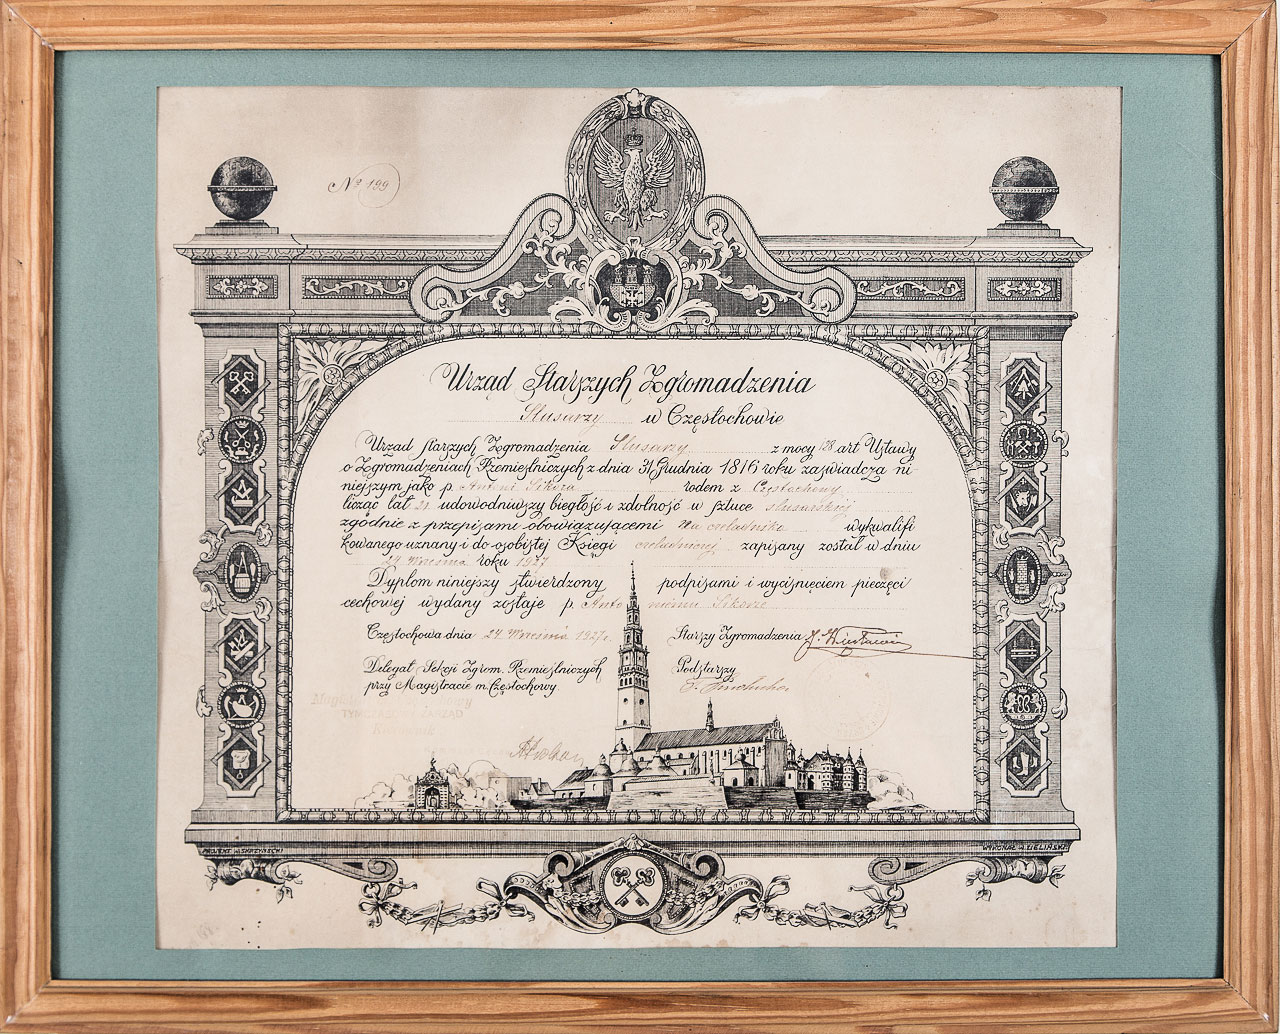 № 199
Urząd Starszych Zgromadzenia
Ślusarzy w Częstochowie
Urząd starszych Zgromadzenia Ślusarzy z mocy 128 art Ustawy
o Zgromadzeniach Rzemieślniczych z dnia 31 Grudnia 1816 roku zaświadcza ni-
niejszym jako p. Antoni Sikora rodem z Częstochowy
licząc lat 21 udowodniwszy biegłość i zdolność w sztuce ślusarskiej
zgodnie z przepisami obowiązującemi na czeladnika wykwalifi
kowanego uznany i do osobistej Księgi czeladniczej zapisany został w dniu
24 Września roku 1927
Dyplom niniejszy stwierdzony podpisami i wyciśnięciem pieczęci
cechowej wydany zostaje p. Antoniemu Sikorze
Częstochowa dnia 24 Września 1927 r. Starszy Zgromadzenia
Delegat Sekcji Zgrom. Rzemieślniczych Podstarszy
przy Magistracie m. Częstochowy.
TYMCZASOWY ZARZĄD
PROJEKT W. SKRZYSSCKI WYKONAŁ A. ZIELIŃSKI